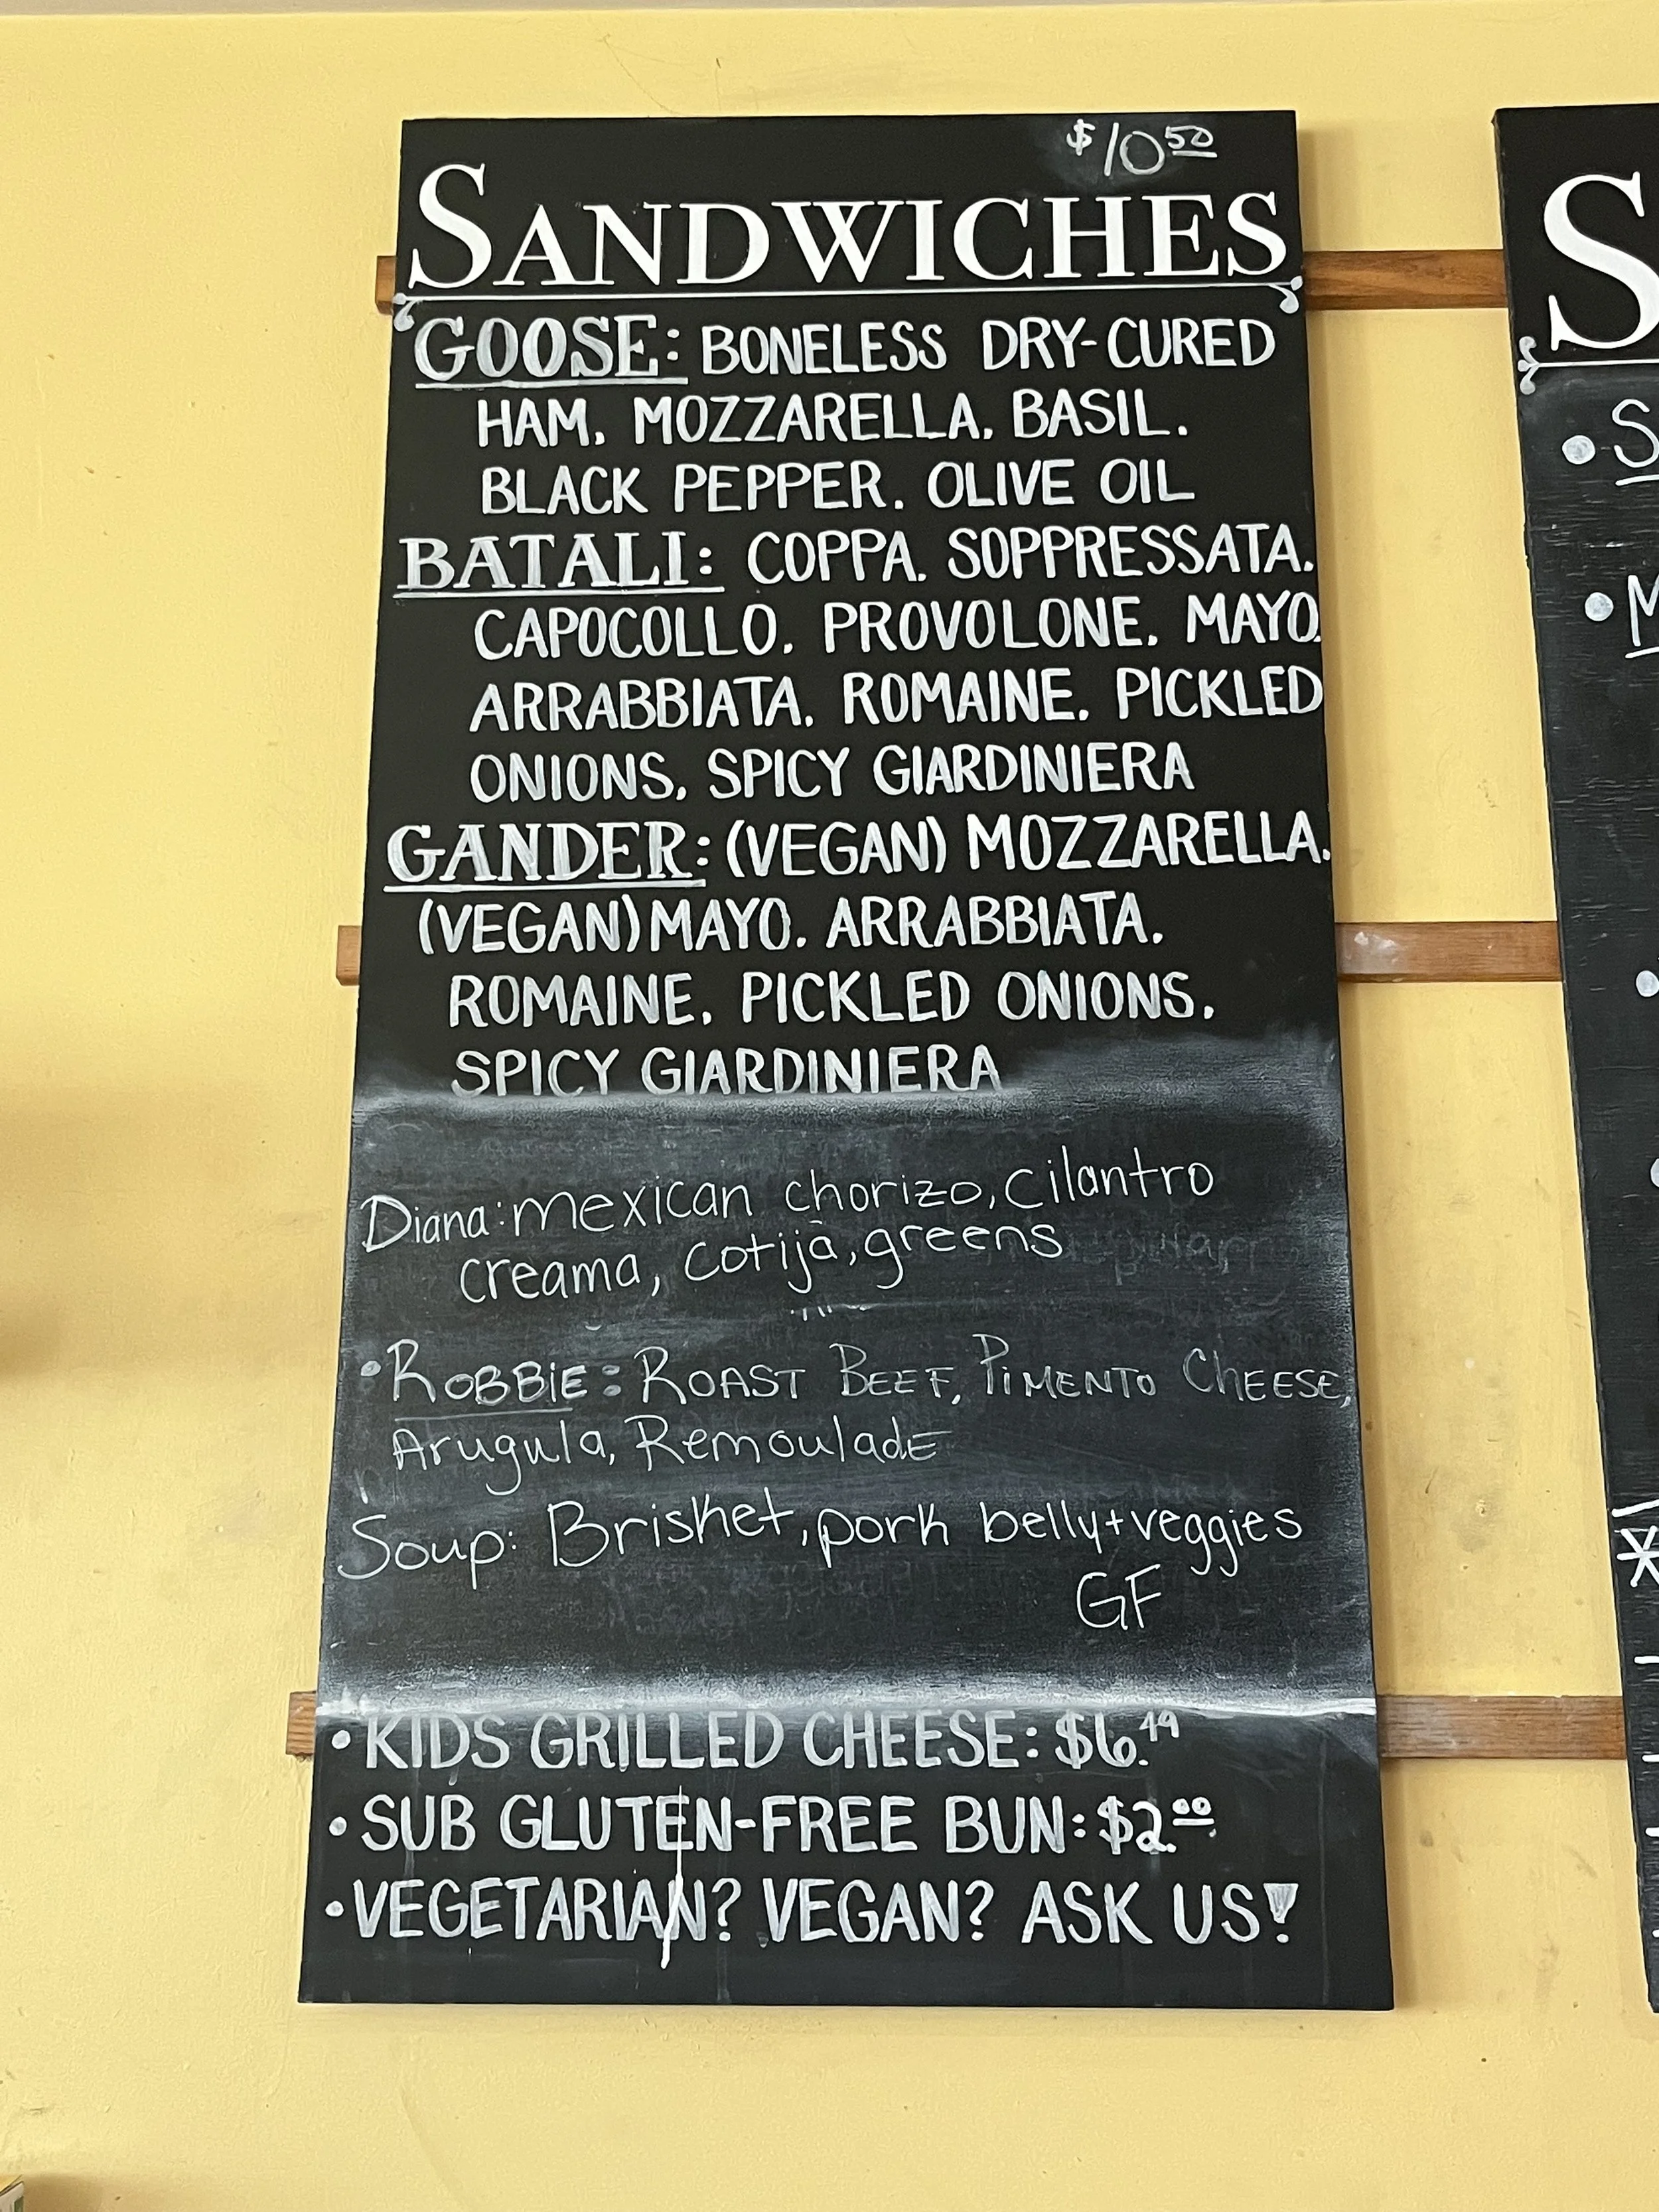 $10.50
SANDWICHES
GOOSE: BONELESS DRY-CURED
HAM, MOZZARELLA, BASIL,
BLACK PEPPER, OLIVE OIL
BATALI: COPPA, SOPPRESSATA,
CAPOCOLLO, PROVOLONE, MAYO,
ARRABBIATA, ROMAINE, PICKLED
ONIONS, SPICY GIARDINIERA
GANDER: (VEGAN) MOZZARELLA,
(VEGAN) MAYO, ARRABBIATA,
ROMAINE, PICKLED ONIONS,
SPICY GIARDINIERA
Diana: mexican chorizo, cilantro
creama, cotija, greens
• ROBBIE: ROAST BEEF, PIMENTO CHEESE,
Arugula, RemouladE
Soup: Brisket, pork belly + veggies
GF
• KIDS GRILLED CHEESE: $6.49
• SUB GLUTEN-FREE BUN: $2.00
• VEGETARIAN? VEGAN? ASK US!